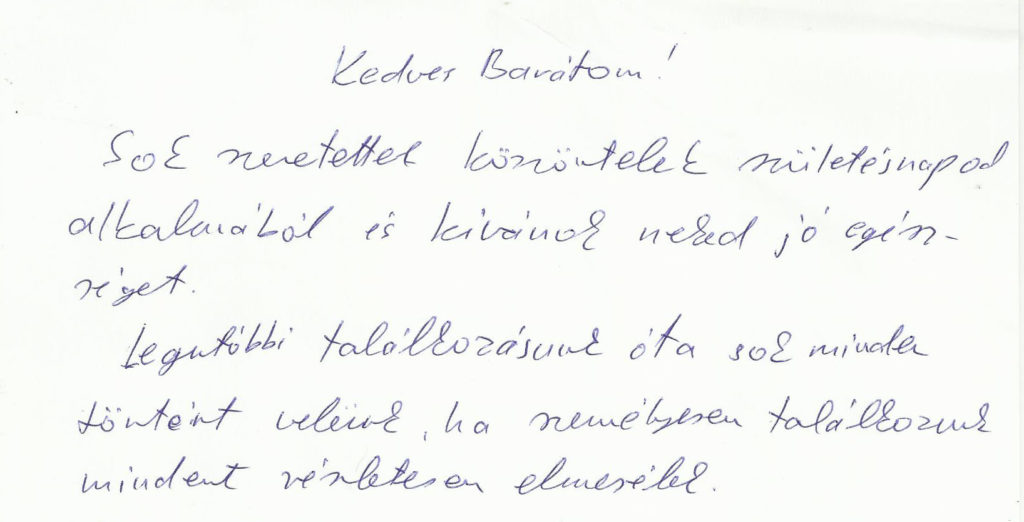 Kedves Barátom!
Sok szeretettel köszöntelek születésnapod
alkalmából és kívánok neked jó egész-
séget.
Legutóbbi találkozásunk óta sok minden
történt velünk, ha személyesen találkozunk
mindent részletesen elmesélek.